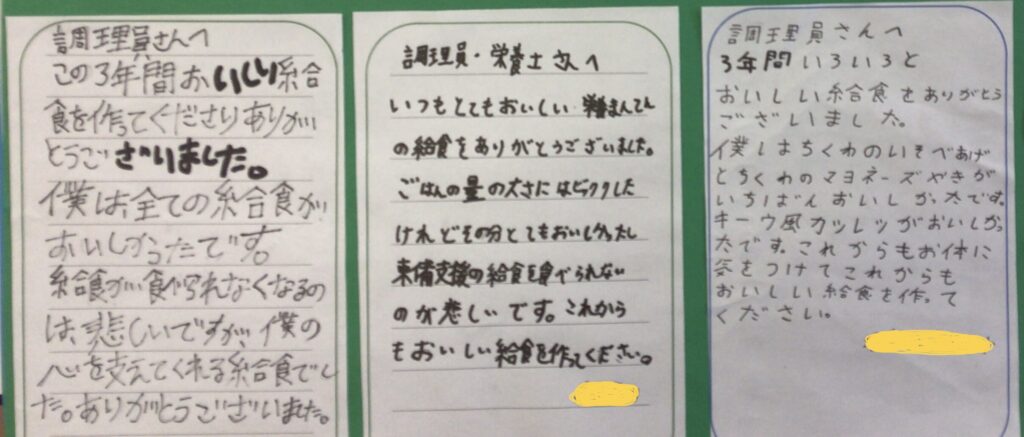 調理員さんへ
この3年間おいしい給
食を作ってくださりありが
とうございました。
僕は全ての給食が
おいしかったです。
給食が食べられなくなるの
は、悲しいですが、僕の
心を支えてくれる給食でし
た。ありがとうございました。
調理員・栄養士さんへ
いつもとてもおいしい栄養まんてん
の給食をありがとうございました。
ごはんの量の大さにはビックリした
けれどその分とてもおいしかったし
東備支援の給食を食べられない
のが悲しいです。これから
もおいしい給食を作ってください。
調理員さんへ
3年間いろいろと
おいしい給食をありがとう
ございました。
僕はちくわのいそべあげ
とちくわのマヨネーズやきが
いちばんおいしかったです。
キーウ風カツレツがおいしかっ
たです。これからもお体に
気をつけてこれからも
おいしい給食を作って
ください。